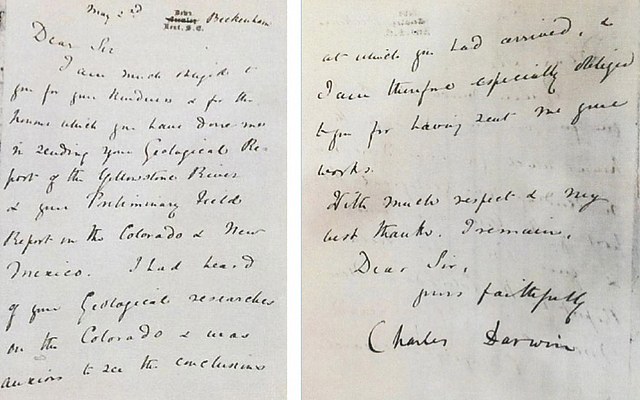 May 2nd
Down
Beckenham
Kent. S.E.
Dear Sir
I am much obliged to
you for your kindness & for the
honour which you have done me
in sending your Geological Re-
port of the Yellowstone River
& your Preliminary Field
Report on the Colorado & New
Mexico. I had heard
of your Geological researches
on the Colorado & was
anxious to see the conclusions
at which you had arrived, &
I am therefore especially obliged
to you for having sent me your
works.
With much respect & my
best thanks. I remain,
Dear Sir,
yours faithfully
Charles Darwin